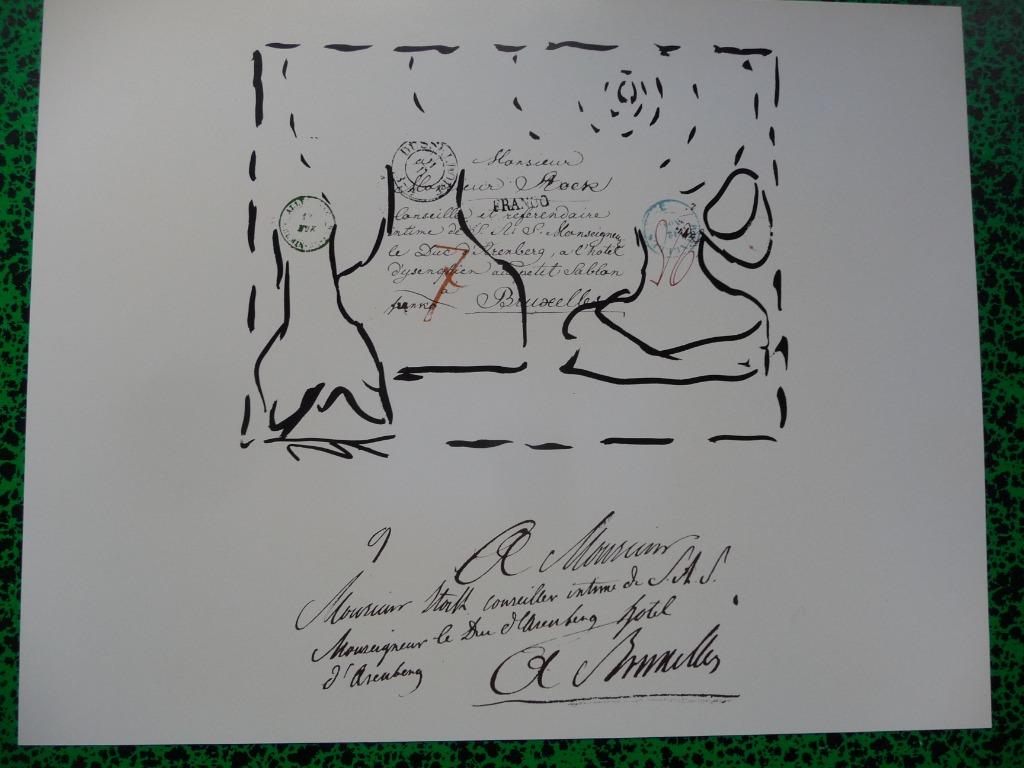 Monsieur
Monsieur Stock
FRANCO
Conseiller et référendaire
intime de S. A. S. Monseigneur
le Duc d'Arenberg, a l'hotel
au petit Sablon
7
a
franco Bruxelles
9
A Monsieur
Monsieur Stock conseiller intime de S. A. S.
Monseigneur le Duc d'Arenberg hotel
d'Arenberg
A Bruxelles